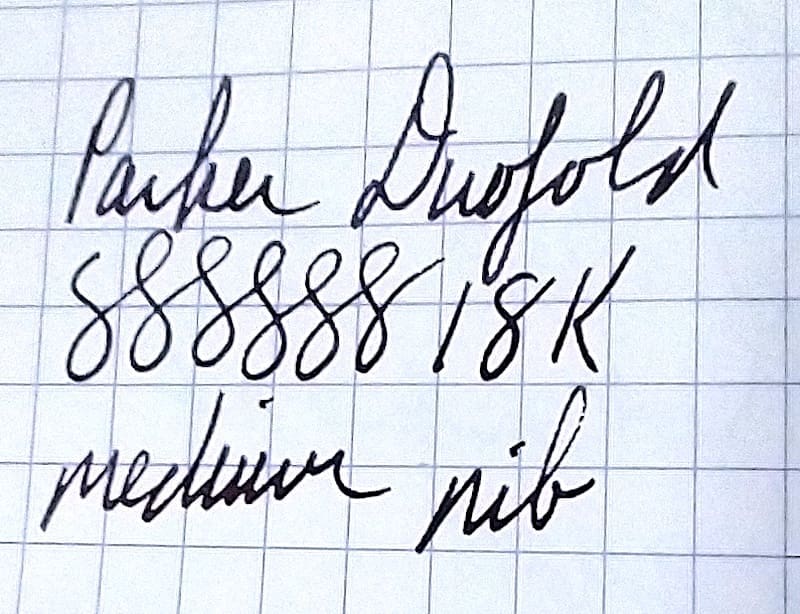 Parker Duofold
888888 18K
medium nib